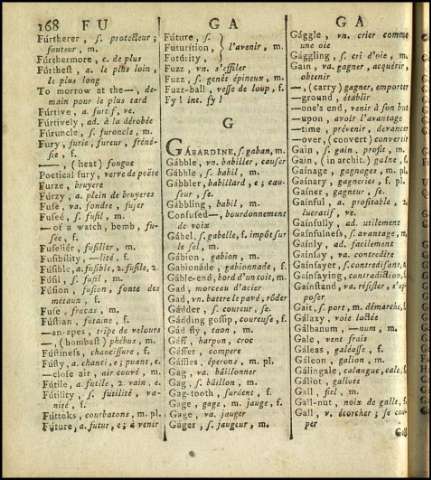 168 FU
GA
GA
Fúrtherer, s. protecteur;
fauteur, m.
Fúrthermore, c. de plus
Fúrthest, a. le plus loin,
le plus long
To morrow at the—, de-
main pour le plus tard
Fúrtive, a. furtif, ve.
Fúrtively, ad. à la dérobée
Fúruncle, s. furoncle, m.
Fury, furie, fureur, fréné-
sie, f.
—, (heat) fougue
Poetical fury, verve de poëte
Furze, bruyere
Fúrzy, a. plein de bruyeres
Fuse, va. fondre, fuser
Fuseé, s. fusil, m.
— of a watch, bomb, fu-
sée, f.
Fuseéiée, fusilier, m.
Fusibility, —lité, f.
Fúsible, a. fusible, a. fusile, 2.
Fúsil, s. fusil, m.
Fúsion, fusion, fonte des
métaux, f.
Fuse, fracas, m.
Fústian, futaine, f.
—an-apes, tripe de velours
—, (bombast) phébus, m.
Fústiness, chancissure, f.
Fústy, a. chanci, e; puant, e.
—close air, air couvé, m.
Fútile, a. futile, 2. vain, e.
Futility, s. futilité, va-
nité, f.
Futtoks, courbatons, m. pl.
Fúture, a. futur, e; à venir
Fúture, s.
Futurition,
Futúrity,
l'avenir, m.
Fuzz, vn. s'effiler
Fuzz, s. genêt épineux, m.
Fuzz-ball, vesse de loup, f.
Fy! int. fy!
G
GABARDINE, s. gaban, m.
Gábble, vn. babiller, causer
Gábble, s. babil, m.
Gábbler, babillard, e; cau-
seur, se.
Gábbling, babil, m.
Confused—, bourdonnement
de voix
Gábel, s. gabelle, f. impôt sur
le sel, m.
Gábion, gabion, m.
Gabionáde, gabionnade, f.
Gáble-end, bord d'un toit, m.
Gad, morceau d'acier
Gad, vn. battre le pavé, rôder
Gádder, s. coureur, se.
Gádding gossip, coureuse, f.
Gád fly, taon, m.
Gáff, harpon, croc
Gáffer, compere
Gáffles, éperons, m. pl.
Gag, va. bâillonner
Gag, s. bâillon, m.
Gag-tooth, surdent, f.
Gage, gage, m. jauge, f.
Gage, va. jauger
Gáger, s. jaugeur, m.
Gággle, vn. crier comme
une oie
Gággling, s. cri d'oie, m.
Gain, va. gagner, acquérir,
obtenir
—, (carry) gagner, emporter
—ground, établir
—one's end, venir à son but
—upon, avoir l'avantage
—time, prévenir, devancer
—over, (convert) convertir
Gain, s. gain, profit, m.
Gain, (in archit.) gaîne, f.
Gainage, gagnages, m. pl.
Gáinary, gagneries, f. pl.
Gáiner, gagneur, se.
Gainful, a. profitable, 2.
lucratif, ve.
Gáinfully, ad. utilement
Gáinfulness, s. avantage, m.
Gáinly, ad. facilement
Gáinsay, va. contredire
Gáinsayer, s. contredisant, e
Gáinsaying, contradiction, f.
Gáinstand, va. résister, s'op-
poser
Gait, s. port, m. démarche, f.
Gálaxy, voie lactée
Gálbanum, —num, m.
Gale, vent frais
Gáleas, galéasse, f.
Gáleon, galion, m.
Gálingale, calangue, cale, f.
Gáliot, galiote
Gall, fiel, m.
Gall-nut, noix de galle, f.
Gall, v. écorcher; se cou-
per
Gall